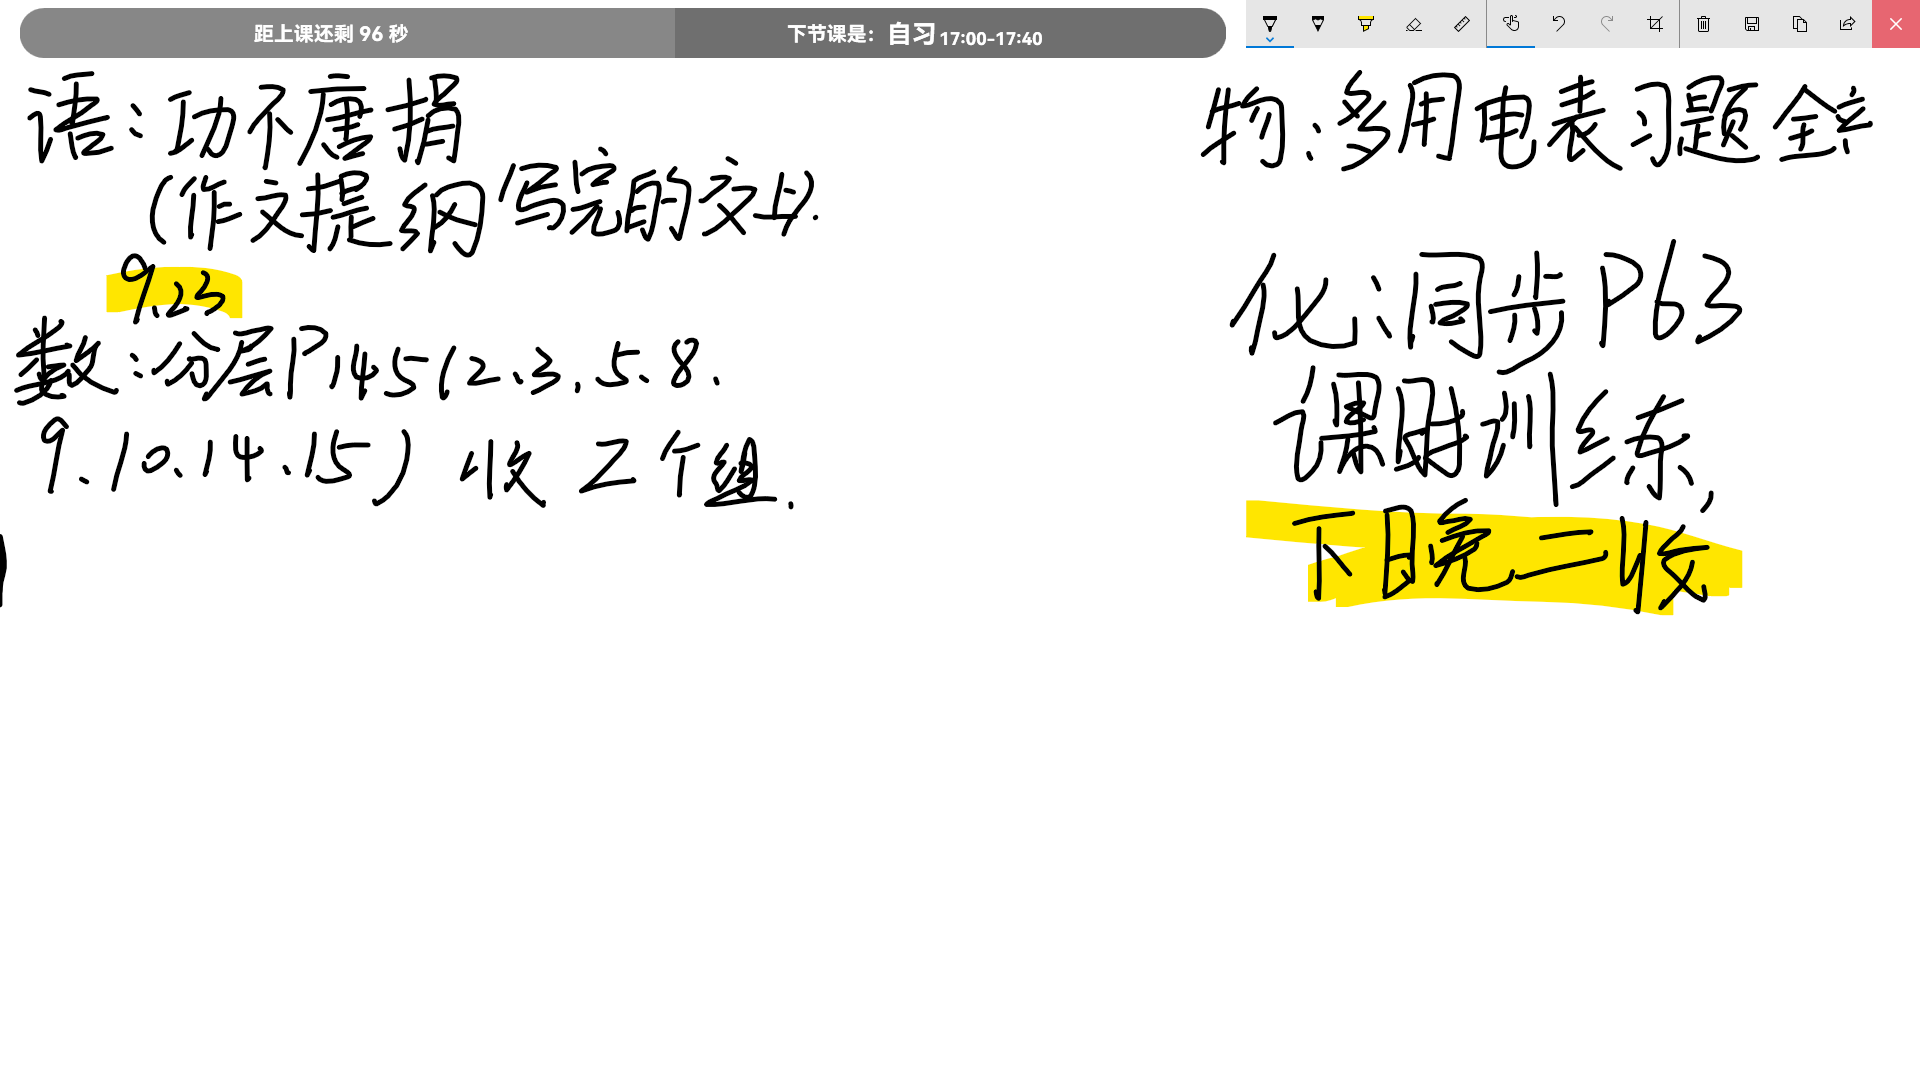 距上课还剩 96 秒
下节课是：自习 17:00-17:40
语：功不唐捐
（作文提纲写完的交上）.
9.23
数：分层P145(2.3.5.8.
9.10.14.15) 收 2个组.
物：多用电表习题全
化：同步P63
课时训练,
下日晚二收